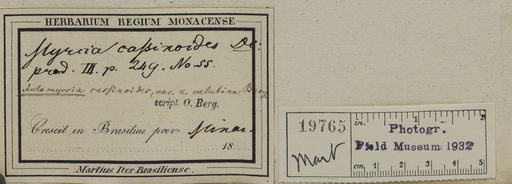 HERBARIUM REGIUM MONACENSE
Myrcia cassinoides De:
prod. III. p. 249. No. 55.
Aulomyrcia cassinoides, var. α. velutina Berg
script. O. Berg.
Crescit in Brasiliae prov. Minas.
18
Martius Iter Brasiliense.
19765
Mart
in. 1 2
Photogr.
Field Museum 1932
cm. 1 2 3 4 5